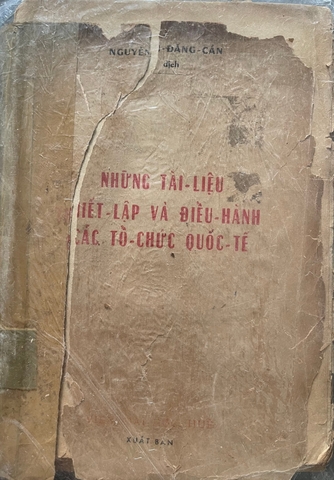 NGUYỄN-ĐĂNG-CẦN
dịch
NHỮNG TÀI-LIỆU
THIẾT-LẬP VÀ ĐIỀU-HÀNH
CÁC TỔ-CHỨC QUỐC-TẾ
XUẤT BẢN